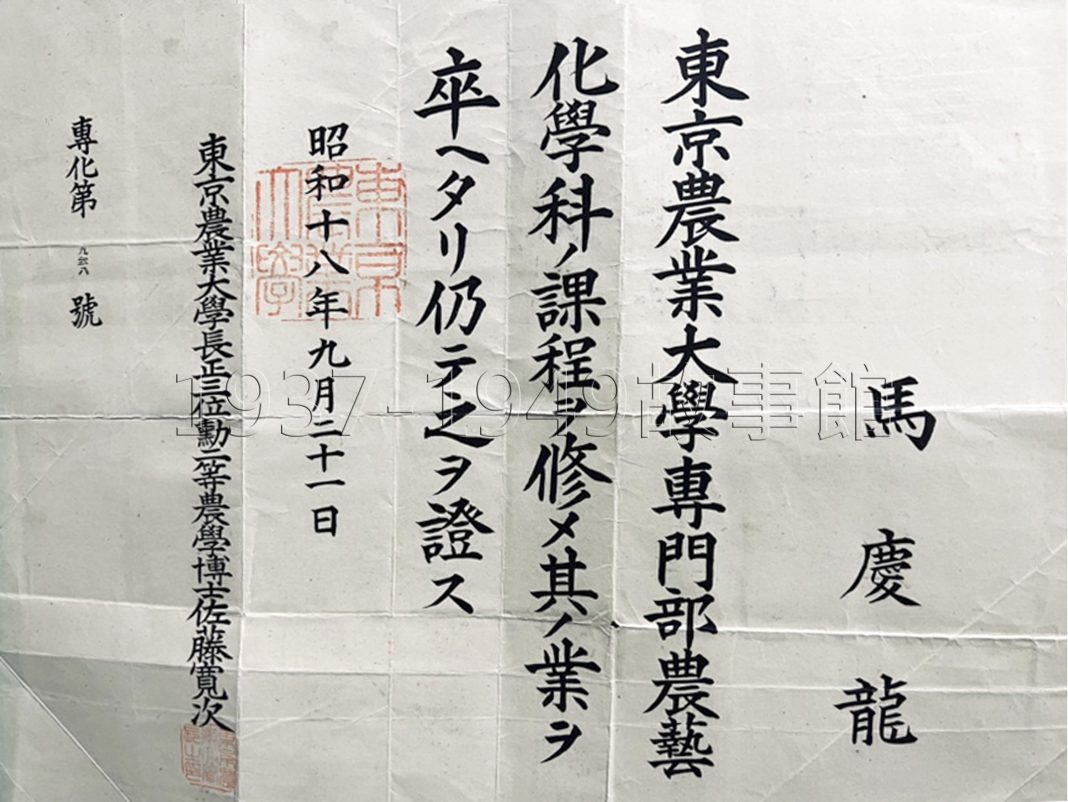 馬慶龍
東京農業大學專門部農藝
化學科ノ課程ヲ修メ其ノ業ヲ
卒ヘタリ仍テ之ヲ證ス
昭和十八年九月二十一日
東京農業大學
東京農業大學長正三位勳二等農學博士佐藤寬次
專化第 號
1937-1949故事館